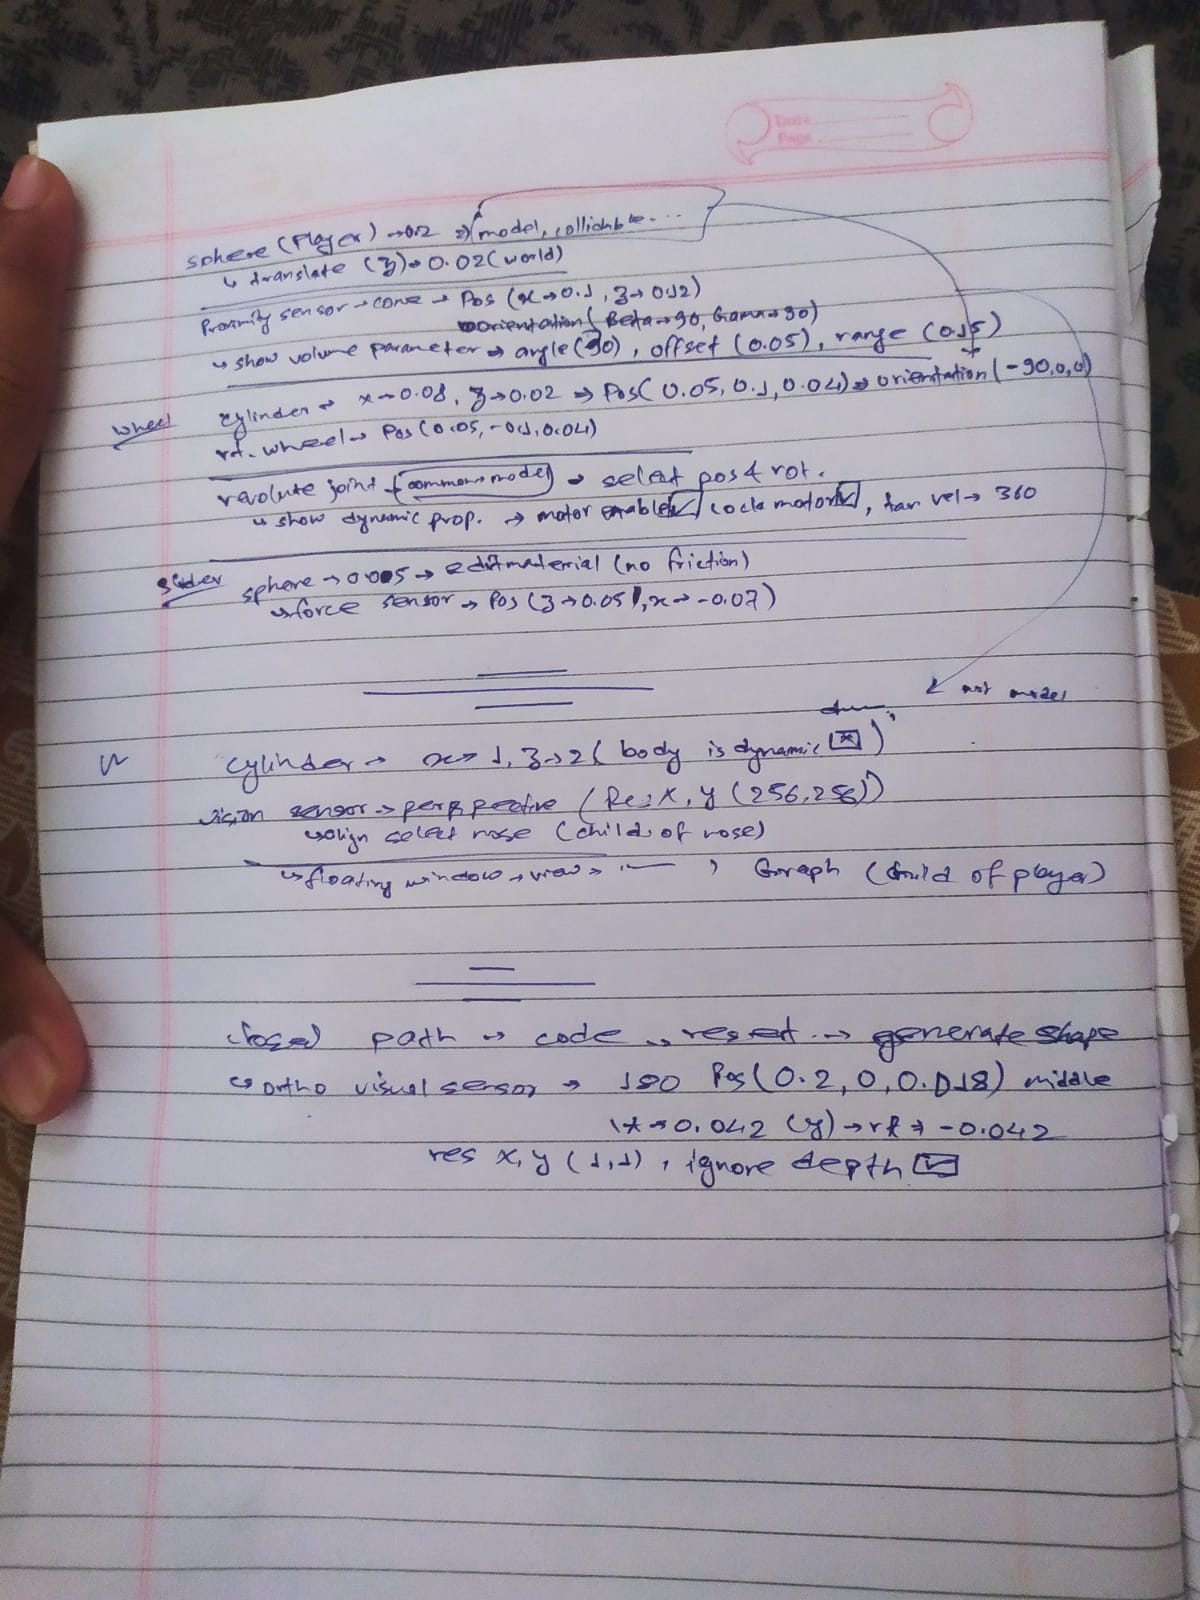 Date
Page
sphere (Player) → 0.2 → (model, collidable....
↳ translate (z) → 0.02 (world)
Proximity sensor → cone → Pos (x→0.1, z→0.12)
orientation (Beta→90, Gama→90)
↳ show volume parameter → angle (30), offset (0.05), range (0.15)
wheel cylinder → x→0.08, z→0.02 → Pos( 0.05, 0.1, 0.04) → orientation (-90,0,0)
rt. wheel → Pos (0.05, -0.1, 0.04)
revolute joint (common→model) → select pos & rot.
↳ show dynamic prop. → motor enable ☑ lock motor ☑, tar vel → 360
slider sphere → 0.005 → edit material (no friction)
↳ force sensor → Pos (z→0.051, x→ -0.07)
not model
cylinder → x→ 1, z→2 ( body is dynamic ☒ )
vision sensor → perspective (Res X, y (256,256))
↳ align select nose (child of nose)
↳ floating window → view → , Graph (child of player)
closed path → code → reset → generate shape
↳ ortho visual sensor → 180 Pos (0.2, 0, 0.018) middle
lt → 0.042 (y) → rt → -0.042
res x, y (1,1), ignore depth ☑